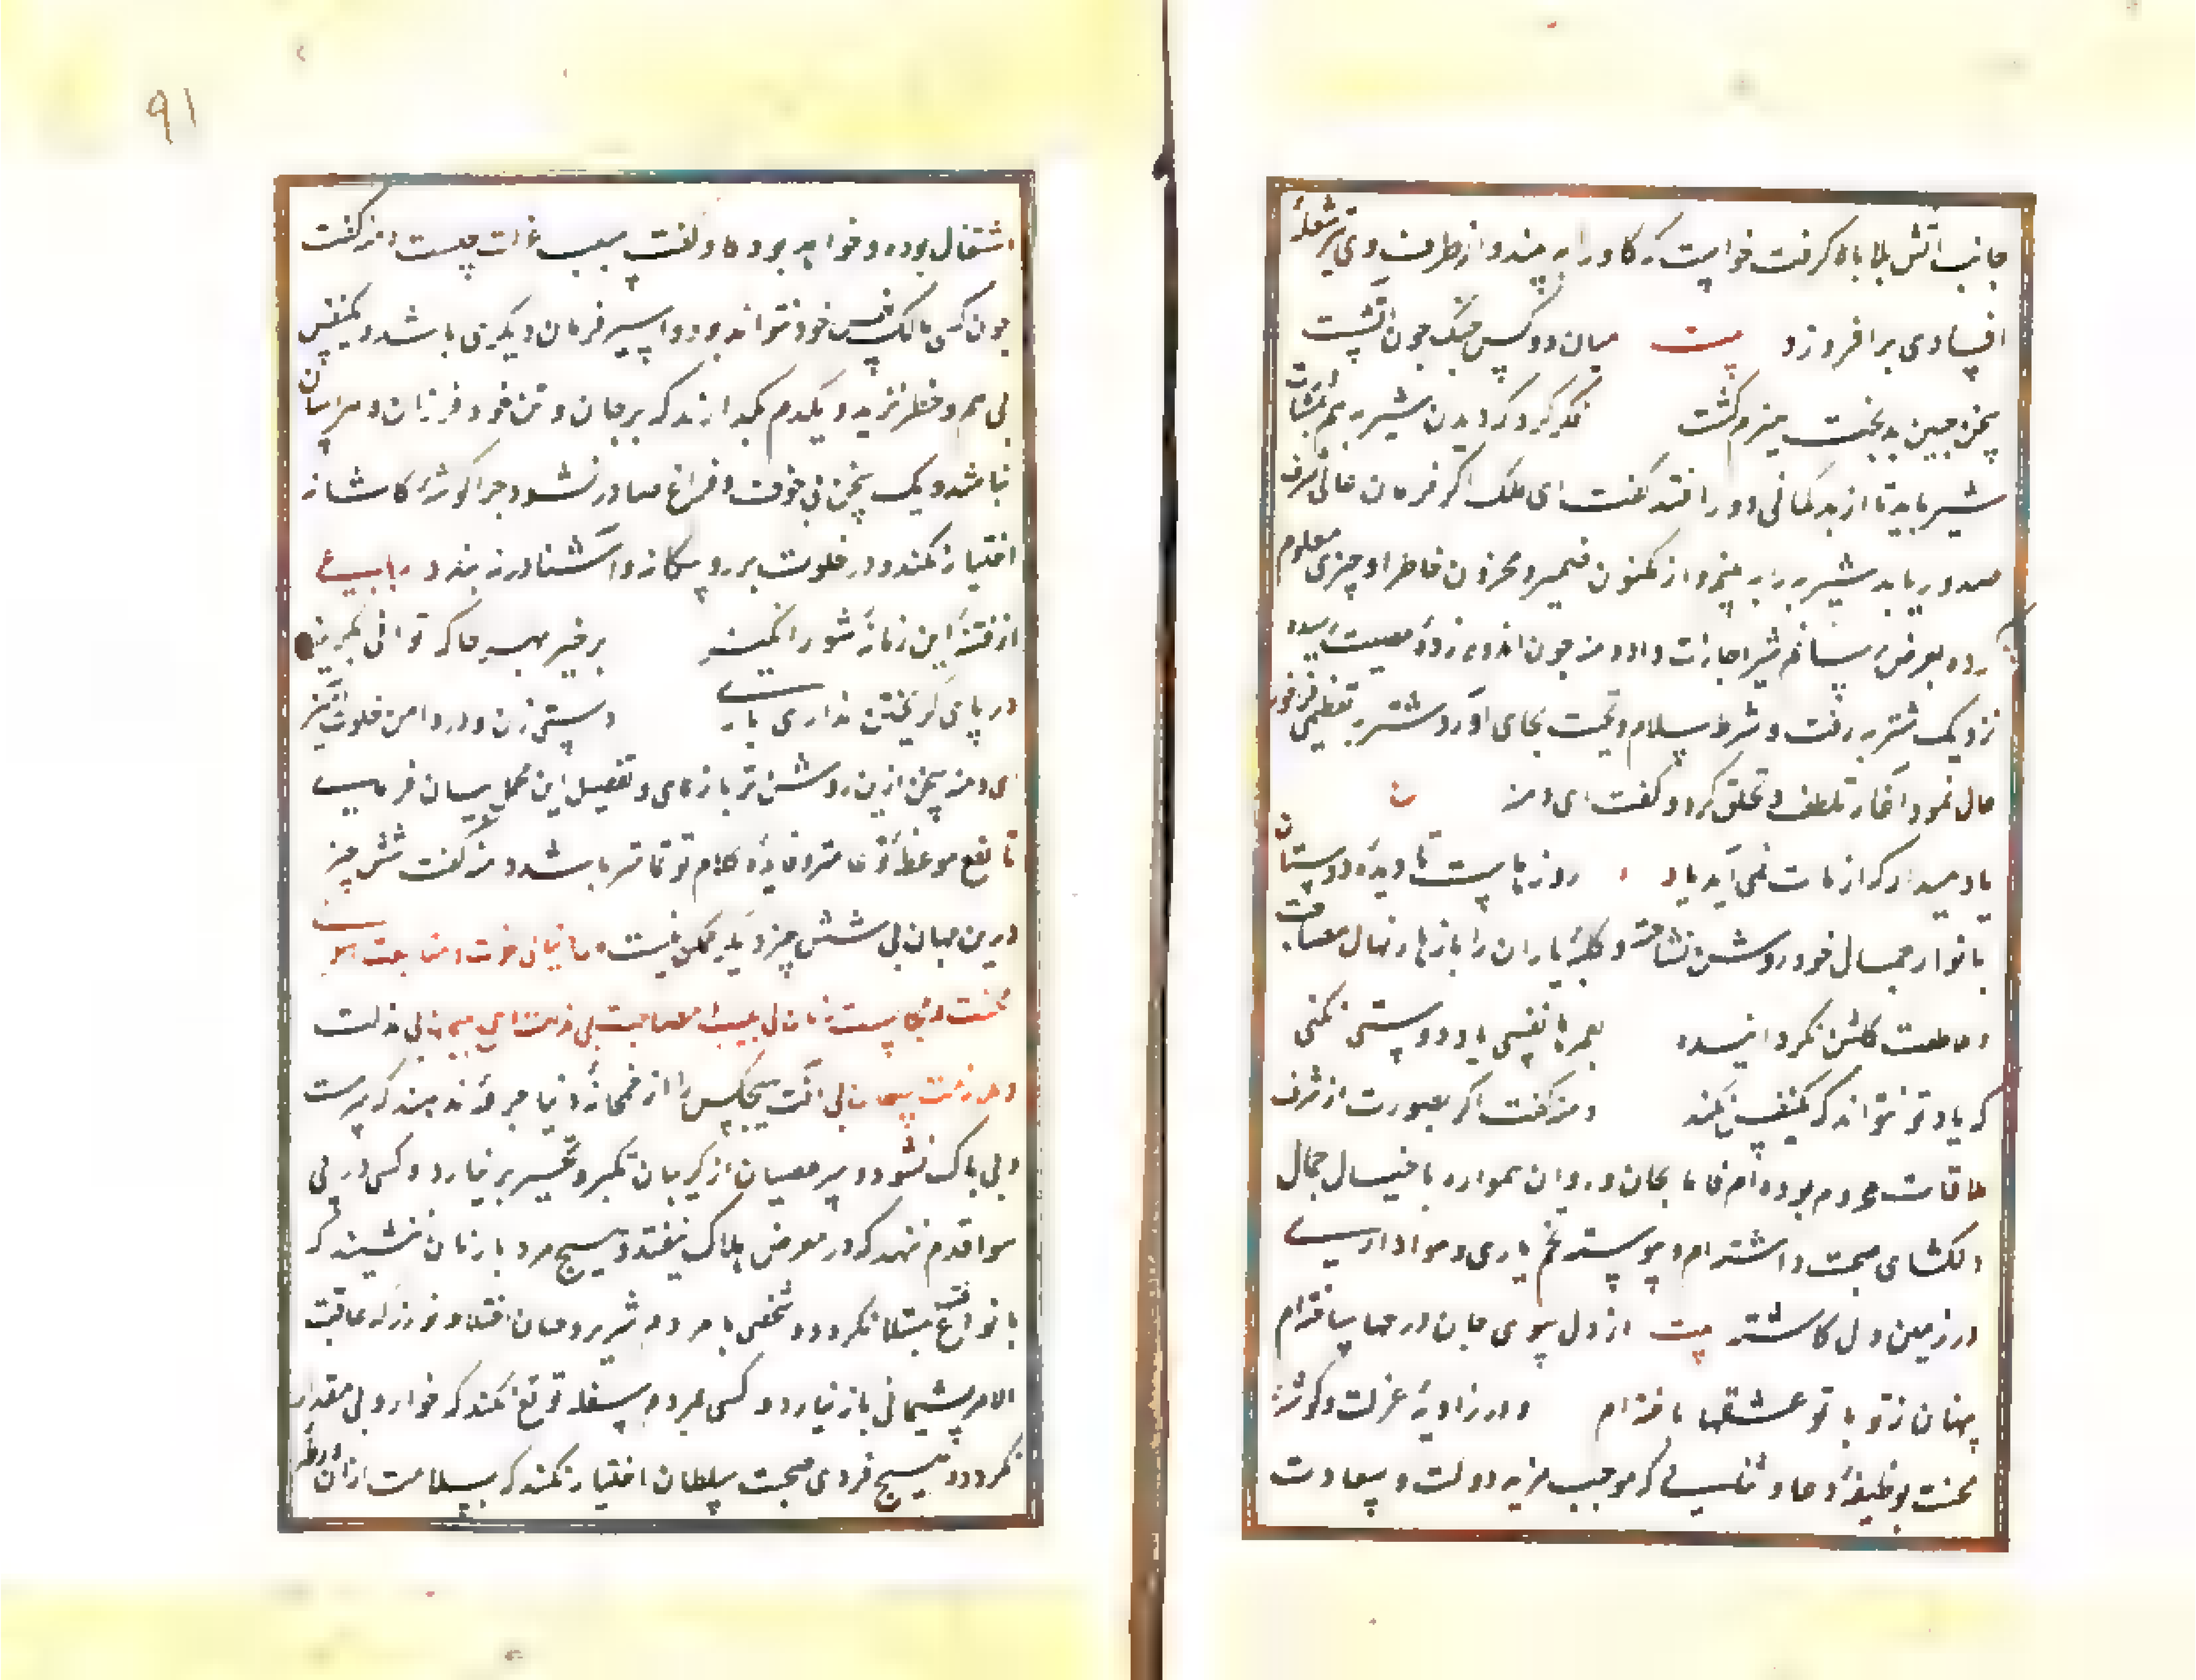 جانب آتش بلا بالا گرفت خواست که گاو را به بیند و از طرف وی نیز شعلهٔ
افسادی برافروزد بیت میان دو کس جنگ چون آتشست
سخن چین بدبخت هیزم کشست فکر کرد که دیدن شنزبه هم بمشات
شیر باید تا از بدگمانی دور افتد گفت ای ملک اگر فرمان عالی شرف
صدور یابد شنزبه را به بینم و از مکنون ضمیر و مخزون خاطر او چیزی معلوم
کرده بعرض رسانم شیر اجازت داد و دمنه چون اندوه زدهٔ مصیبت رسیده
نزدیک شنزبه رفت و شرط سلام و تحیت بجای آورد شنزبه تعظیمی فراخور
حال نمود و آغاز تلطف و تملق کرد و گفت ای دمنه
یاد میدار که از مات نمی آید یاد روزهاست تا دیدهٔ دوستان
بانوار جمال خود روشن نساخته و کلبهٔ یاران را بازهار نهال مصاحبت
و مواصلت گلشن نگردانیده بعمرها نفسی یاد دوستی نکنی
که یاد تو نتواند که یکنفس نکند دمنه گفت اگر بصورت از شرف
ملاقات محروم بوده‌ام فاما بجان و روان همواره با خیال جمال
دلکشای صحبت داشته‌ام و پیوسته تخم یاری و هواداری
در زمین دل کاشته بیت از دل سوی جان در مها ساخته‌ام
پنهان ز تو با تو عشقها باخته‌ام و در زاویهٔ عزلت و گوشهٔ
محنت بوظیفهٔ دعا و ثنایی که موجب مزید دولت و سعادت
اشتغال بوده و خواهد بود گاو گفت سبب عزلت چیست دمنه گفت
چون کسی مالک نفس خود نتواند بود و اسیر فرمان دیگری باشد و یکنفس
بی بیم و خطر نزید و یکدم نگذارند که بر جان و تن خود و فرزان و هراسان
نباشد و یک سخن بی خوف و فزع صادر نشود چرا گوشهٔ کاشانه
اختیار نکند و در خلوت بر روی بیگانه و آشنا در نه بندد رباعی
از فتنهٔ این زمانهٔ شورانگیز برخیز بهر جا که توانی بگریز
در پای گریختن نداری باری دستی زن و در دامن خلوت آویز
ای دمنه سخن ازین روشن تر باز نمای و تفصیل این مجمل بیان فرمای
تا نفع موعظهٔ تو عامتر و فایدهٔ کلام تو تمامتر باشد دمنه گفت شش چیز
درین جهان بی شش چیز دیگر ممکن نیست مال دنیا بی نخوت و متابعت هوا بی
محنت و مجالست زنان بی بلیت و مصاحبت لئیمان بی مذلت
و ملازمت سلطان بی آفت هیچکس را از خمخانهٔ دنیا جرعهٔ ندهند که سرمست
و بی باک نشود و سر عصیان از گریبان تکبر و تجبر برنیارد و کسی در پی
هوا قدم ننهد که در معرض هلاک نیفتد و هیچ مرد با زنان ننشیند که
بانواع فتنه مبتلا نگردد و شخصی با مردم شریر و خسان اختلاط نورزد که عاقبت
الامر پشیمانی بار نیارد و کسی بمردم سفله توقع نکند که خوار و بی مقدار
نگردد و هیچ فردی صحبت سلطان اختیار نکند که بسلامت از آن ورطه
۹۱